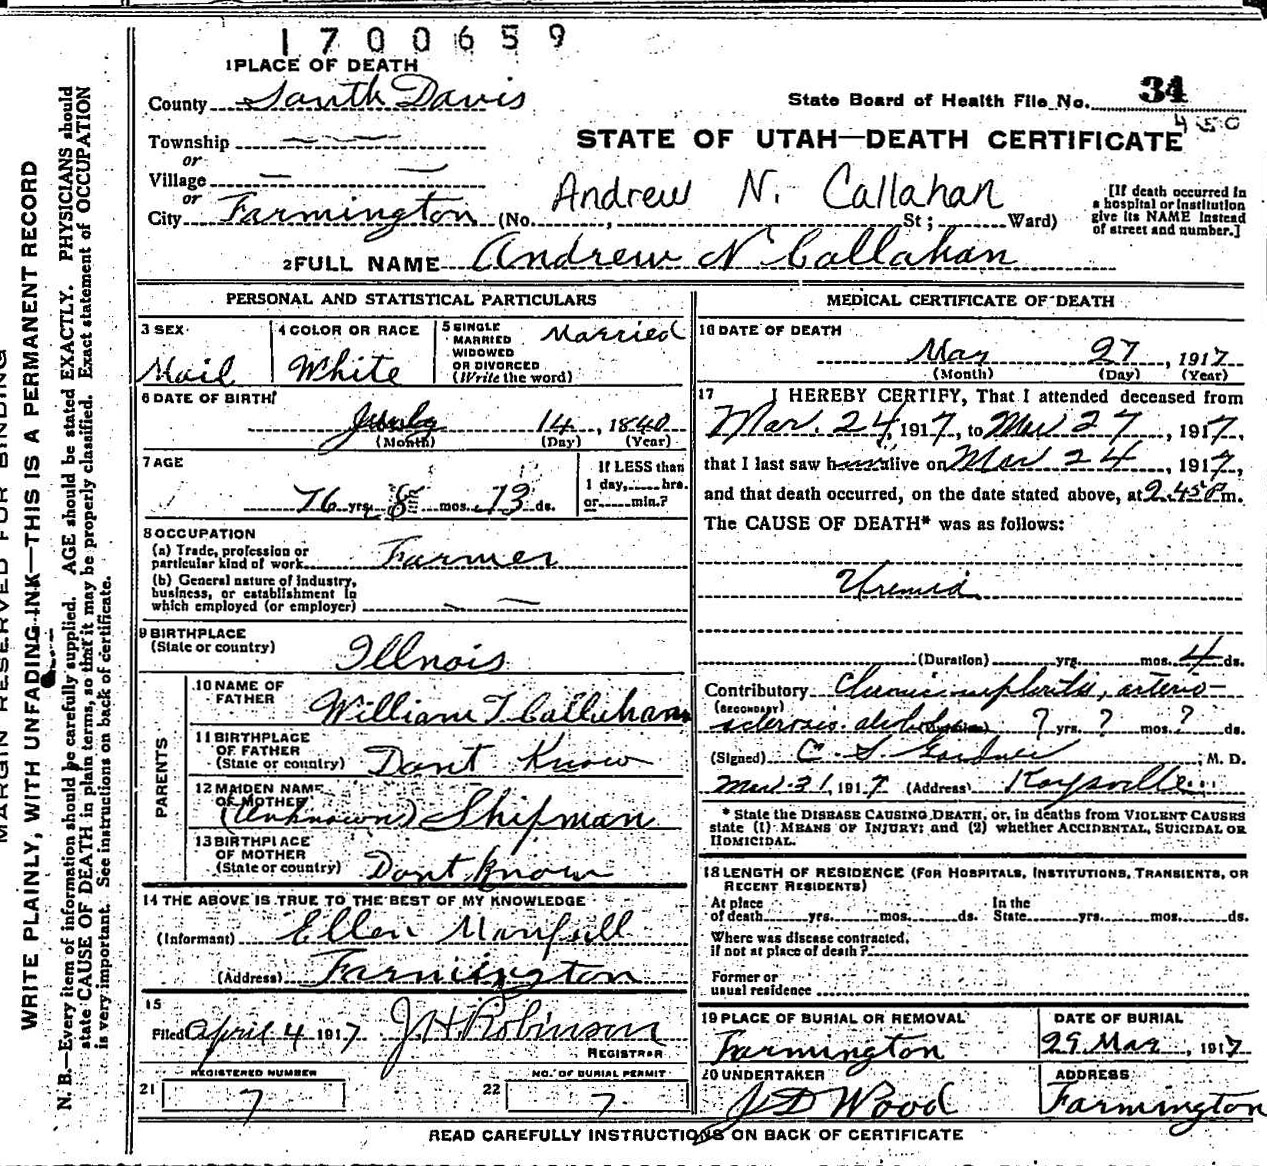 1700659
1 PLACE OF DEATH
County South Davis
State Board of Health File No. 34
450
Township — —
or
STATE OF UTAH—DEATH CERTIFICATE
Village — —
or
Andrew N. Callahan
City Farmington (No. , St; Ward)
[If death occurred in a hospital or institution give its NAME instead of street and number.]
2 FULL NAME Andrew N Callahan
PERSONAL AND STATISTICAL PARTICULARS
3 SEX
Mail
4 COLOR OR RACE
White
5 SINGLE MARRIED WIDOWED OR DIVORCED (Write the word)
Married
6 DATE OF BIRTH
14, 1840
(Month) (Day) (Year)
7 AGE
76 yrs. 8 mos. 13 ds.
If LESS than 1 day, hrs. or min.?
8 OCCUPATION
(a) Trade, profession or particular kind of work Farmer
(b) General nature of industry, business, or establishment in which employed (or employer) — —
9 BIRTHPLACE
(State or country) Illnois
PARENTS
10 NAME OF FATHER William T Callahan
11 BIRTHPLACE OF FATHER (State or country) Dont Know
12 MAIDEN NAME OF MOTHER (Unknown) Shipman
13 BIRTHPLACE OF MOTHER (State or country) Dont know
14 THE ABOVE IS TRUE TO THE BEST OF MY KNOWLEDGE
(Informant) Ellen
(Address) Farmington
15
Filed April 4 1917 J H Robinson
REGISTRAR
21 REGISTERED NUMBER 7
22 NO. OF BURIAL PERMIT 7
MEDICAL CERTIFICATE OF DEATH
16 DATE OF DEATH
Mar 27, 1917
(Month) (Day) (Year)
17 I HEREBY CERTIFY, That I attended deceased from
Mar. 24, 1917, to Mar 27, 1917,
that I last saw h alive on Mar 24, 1917,
and that death occurred, on the date stated above, at 2.45 P m.
The CAUSE OF DEATH* was as follows:
Uremia
(Duration) yrs. mos. 4 ds.
Contributory Chronic nephritis, arterio-
(SECONDARY)
sclerosis. (Duration) ? yrs. ? mos. ? ds.
(Signed) C. S. Gardner, M. D.
Mar. 31, 1917 (Address) Kaysville
* State the DISEASE CAUSING DEATH, or, in deaths from VIOLENT CAUSES
state (1) MEANS OF INJURY; and (2) whether ACCIDENTAL, SUICIDAL OR
HOMICIDAL.
18 LENGTH OF RESIDENCE (FOR HOSPITALS, INSTITUTIONS, TRANSIENTS, OR
RECENT RESIDENTS)
At place of death yrs. mos. ds. In the State yrs. mos. ds.
Where was disease contracted,
if not at place of death?
Former or
usual residence
19 PLACE OF BURIAL OR REMOVAL
Farmington
DATE OF BURIAL
29 Mar, 1917
20 UNDERTAKER
J D Wood
ADDRESS
Farmington
READ CAREFULLY INSTRUCTIONS ON BACK OF CERTIFICATE
MARGIN RESERVED FOR BINDING
WRITE PLAINLY, WITH UNFADING INK—THIS IS A PERMANENT RECORD
N. B.—Every item of information should be carefully supplied. AGE should be stated EXACTLY. PHYSICIANS should
state CAUSE OF DEATH in plain terms, so that it may be properly classified. Exact statement of OCCUPATION
is very important. See instructions on back of certificate.